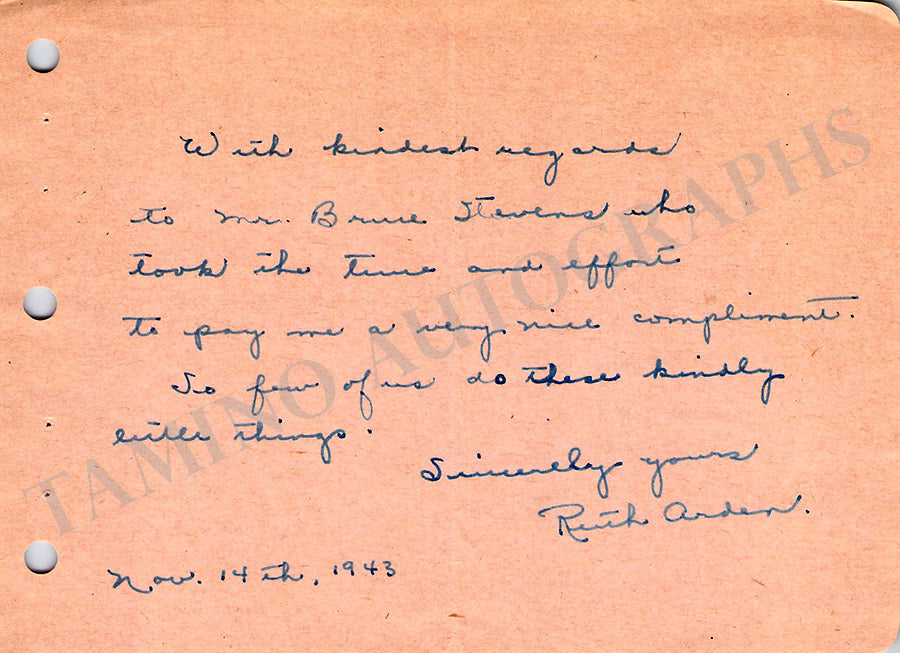 With kindest regards
to Mr. Bruce Stevens who
took the time and effort
to pay me a very nice compliment.
So few of us do these kindly
little things.
Sincerely yours
Ruth Arden.
Nov. 14th, 1943
TAMINO AUTOGRAPHS